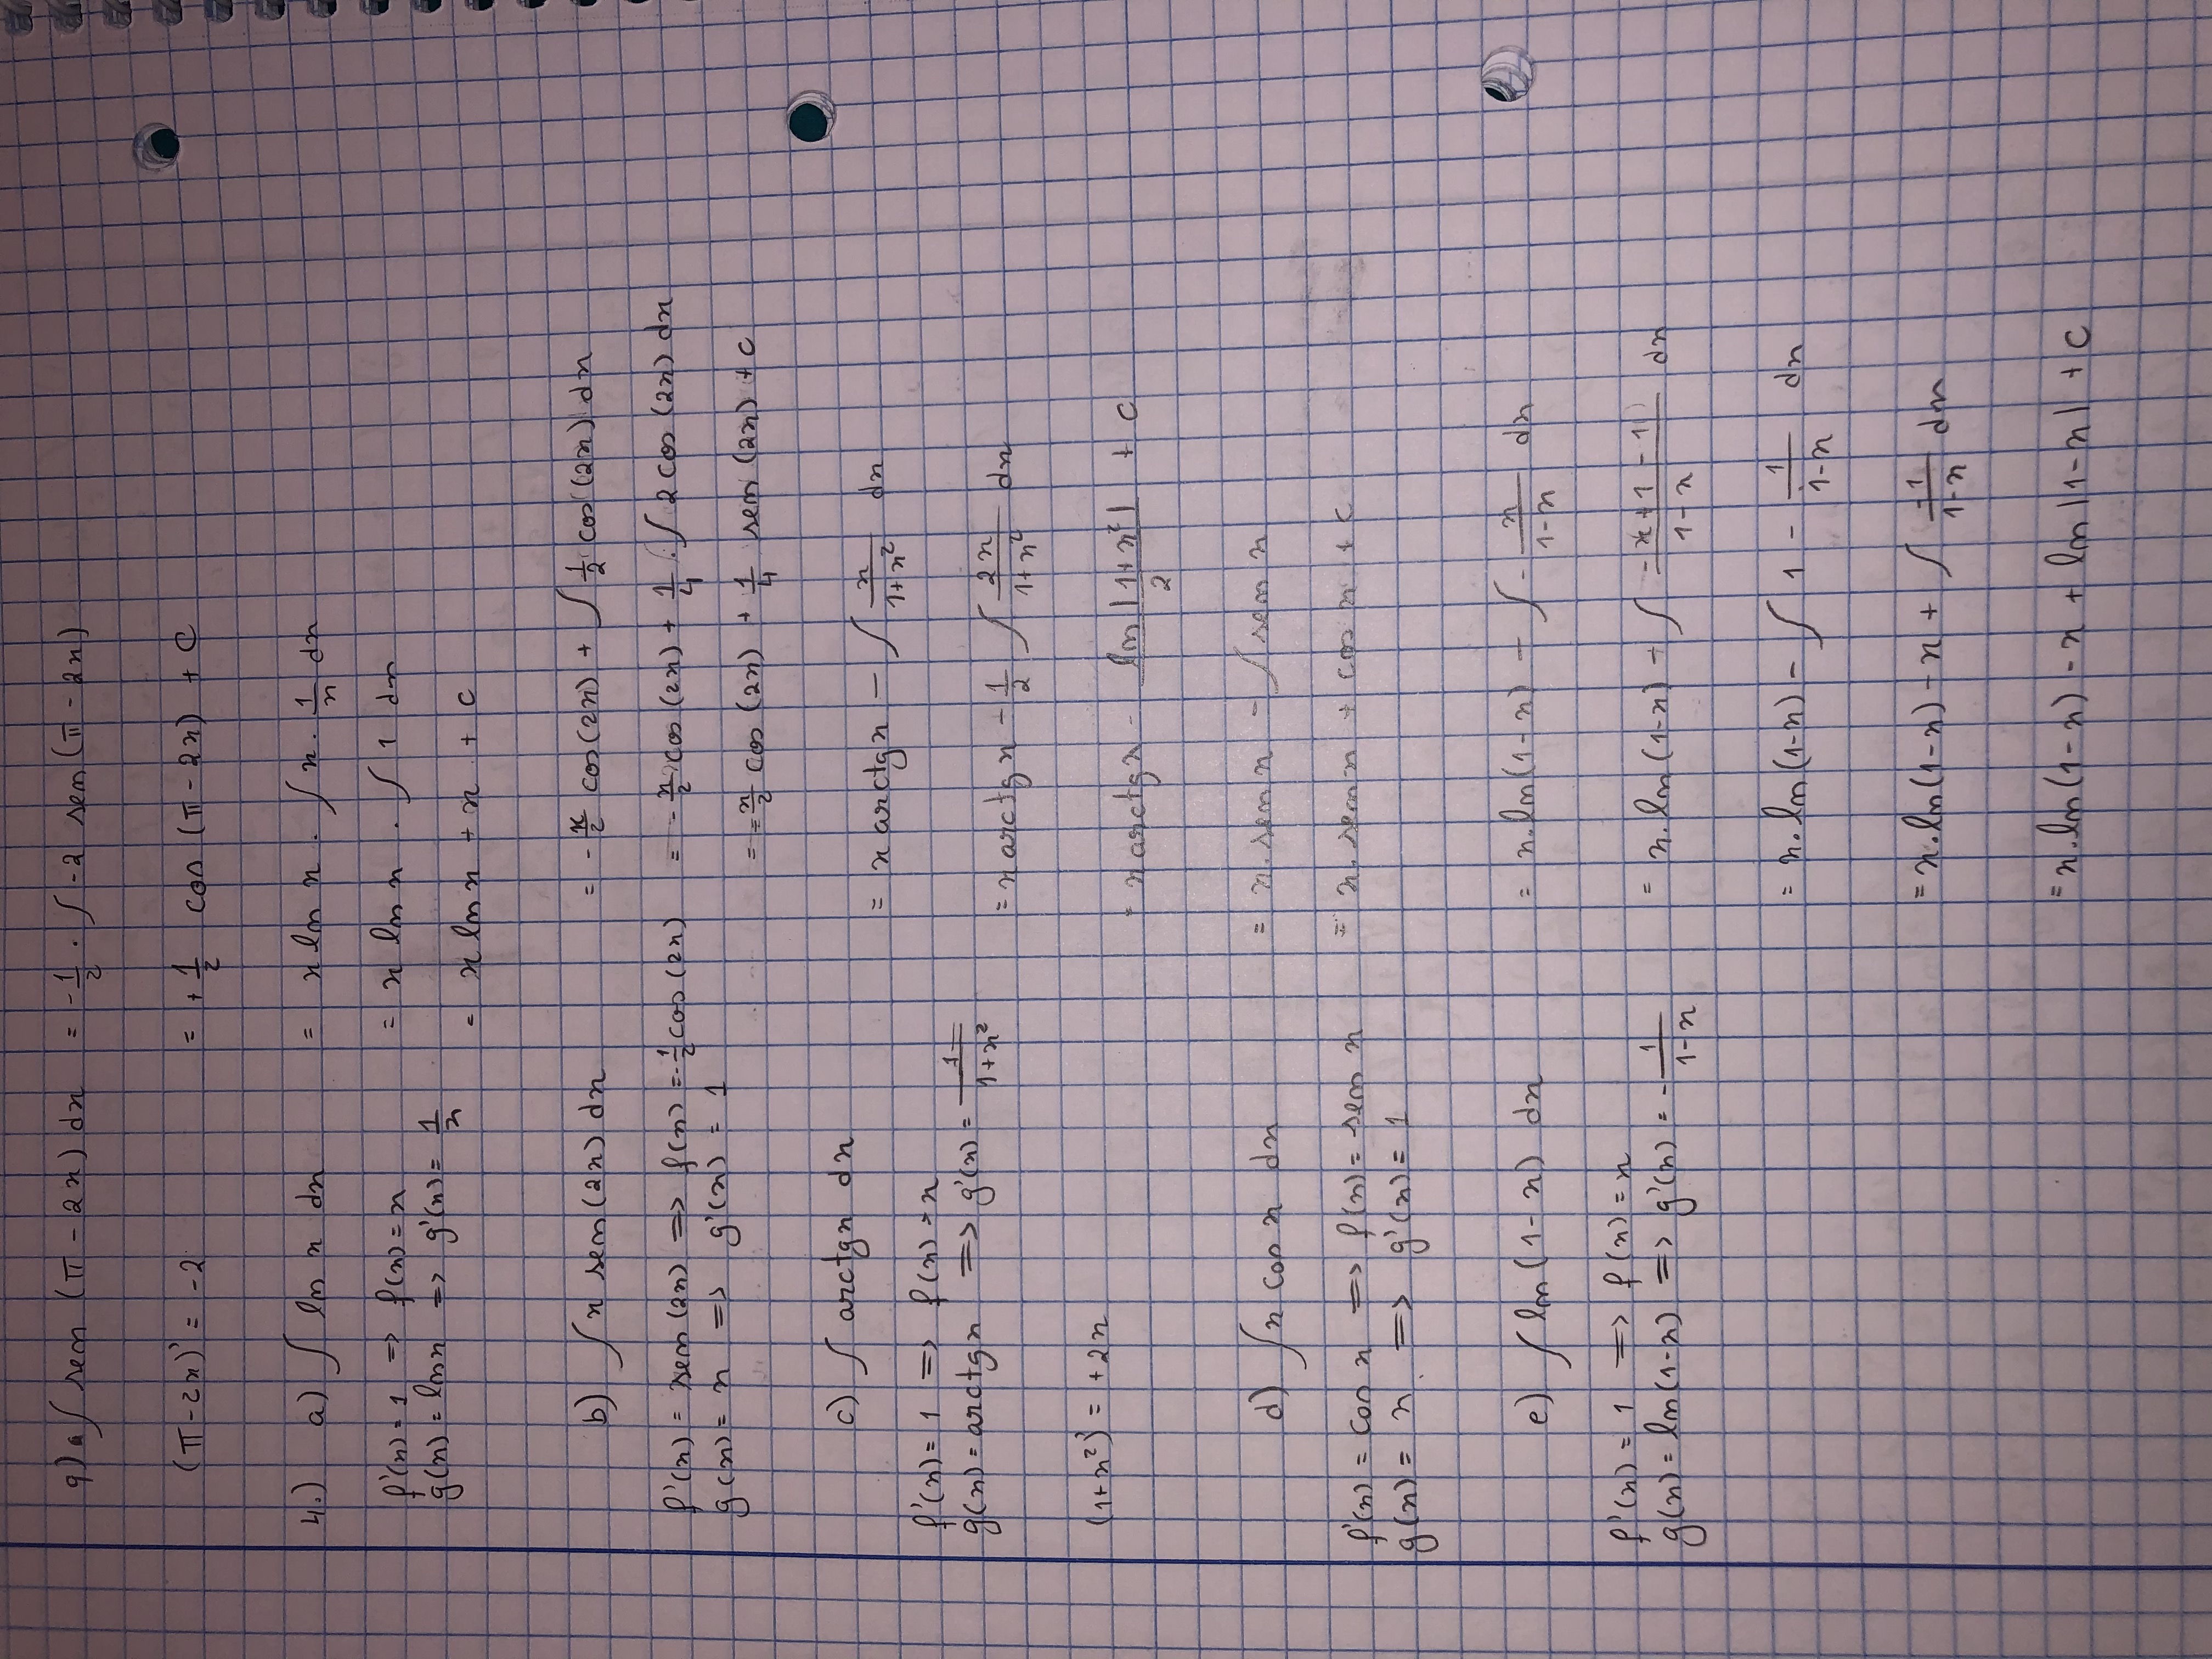 q) ∫ sen (π - 2x) dx = -1/2 · ∫ -2 sen (π - 2x)
(π-2x)' = -2 = +1/2 cos (π - 2x) + C
4.) a) ∫ ln x dx = x ln x · ∫ x · 1/x dx
f'(x) = 1 => f(x) = x = x ln x · ∫ 1 dx
g(x) = ln x => g'(x) = 1/x
= x ln x + x + C
b) ∫ x sen(2x) dx = -x/2 cos(2x) + ∫ 1/2 cos(2x) dx
f'(x) = sen(2x) => f(x) = -1/2 cos(2x) = -x/2 cos(2x) + 1/4 · ∫ 2 cos(2x) dx
g(x) = x => g'(x) = 1
= -x/2 cos(2x) + 1/4 sen(2x) + C
c) ∫ arctg x dx
= x arctg x - ∫ x/(1+x²) dx
f'(x) = 1 => f(x) = x
g(x) = arctg x => g'(x) = 1/(1+x²)
= x arctg x - 1/2 ∫ 2x/(1+x²) dx
(1+x²)' = +2x
= x arctg x - ln|1+x²|/2 + C
d) ∫ x cos x dx = x. sen x - ∫ sen x
f'(x) = cos x => f(x) = sen x = x. sen x + cos x + C
g(x) = x => g'(x) = 1
e) ∫ ln(1-x) dx = x.ln(1-x) - ∫ - x/(1-x) dx
f'(x) = 1 => f(x) = x
g(x) = ln(1-x) => g'(x) = - 1/(1-x) = x.ln(1-x) - ∫ (-x+1-1)/(1-x) dx
= x.ln(1-x) - ∫ 1 - 1/(1-x) dx
= x.ln(1-x) - x + ∫ -1/(1-x) dx
= x.ln(1-x) - x + ln|1-x| + C